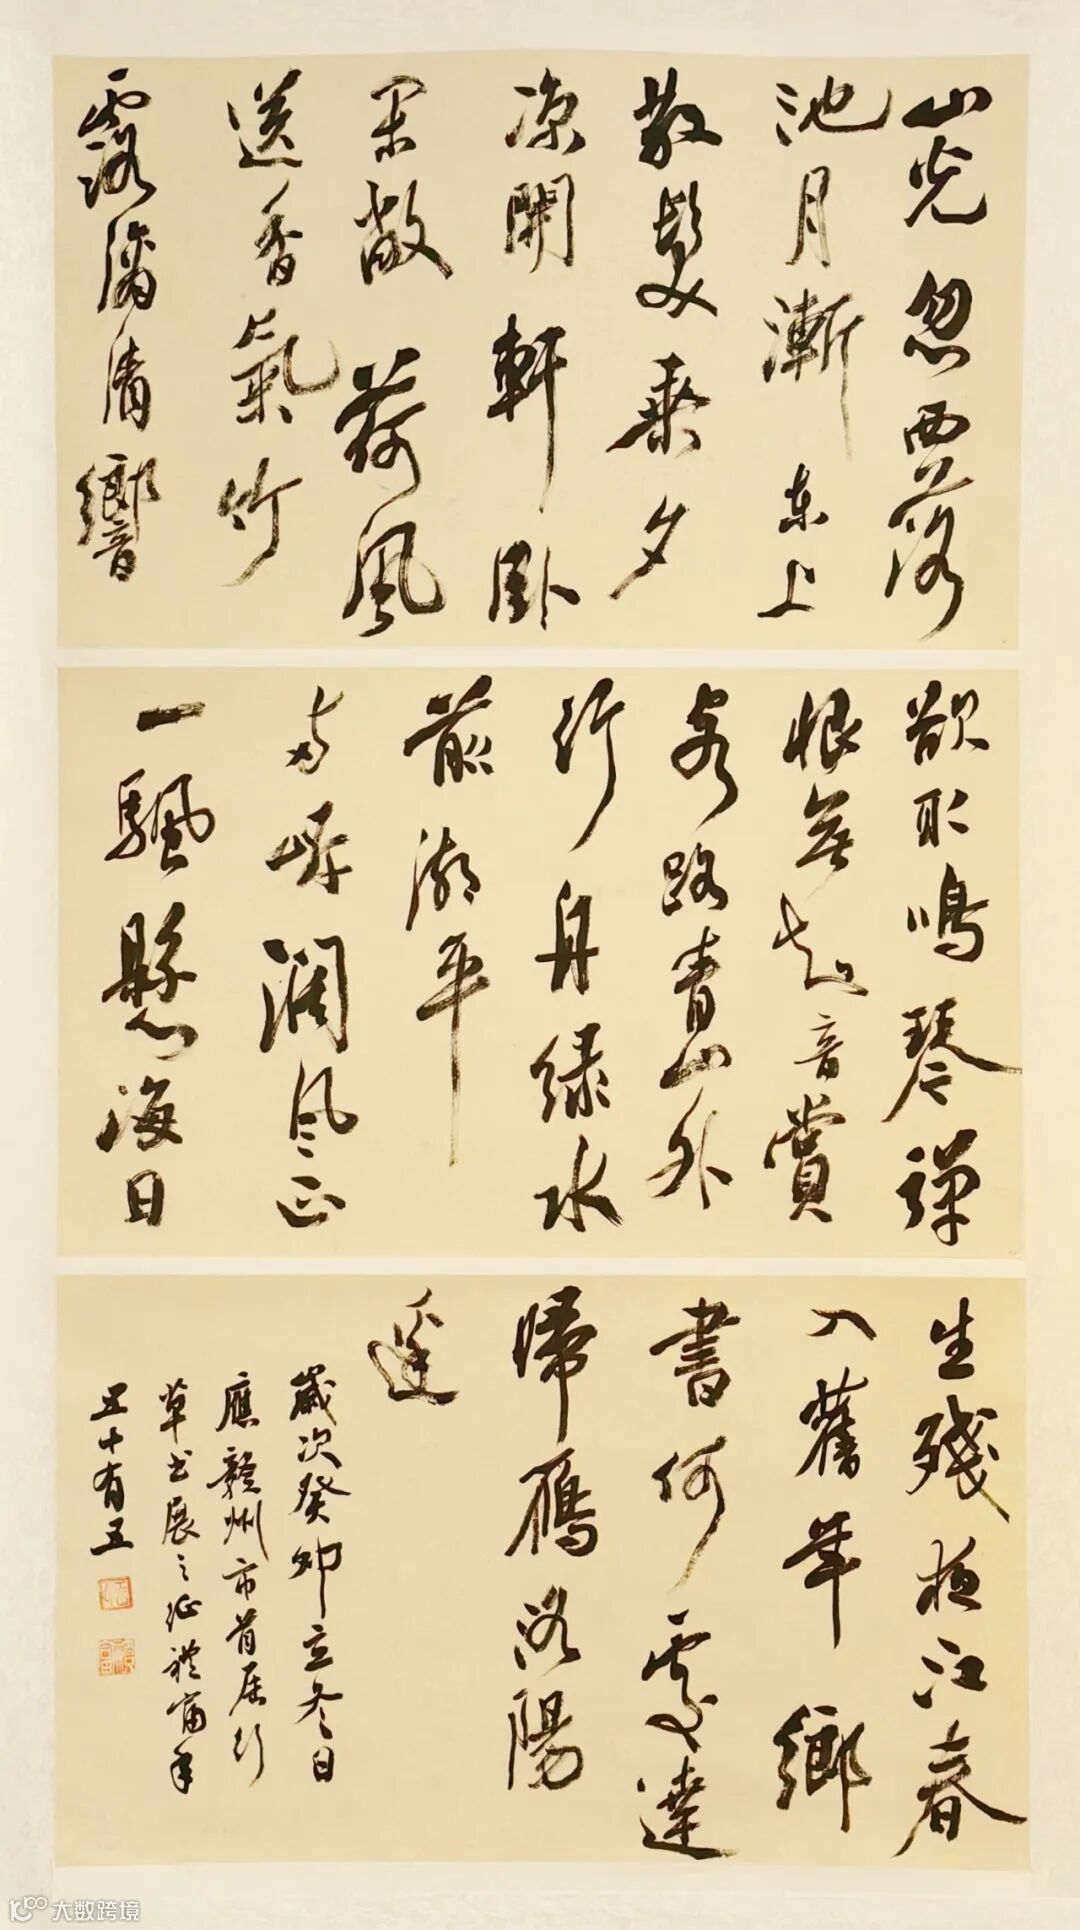 山光忽西落
池月漸东上
散髮乘夕
凉開軒卧
闲敞荷風
送香氣竹
露滴清響
欲取鳴琴彈
恨無知音賞
客路青山外
行舟绿水
前潮平
两岸阔风正
一颿懸海日
生殘夜江春
入舊年鄉
書何處達
歸鴈洛陽
邊
歲次癸卯立冬日
應贛州市首届行
草书展之征禮富年
五十有五
大数跨境